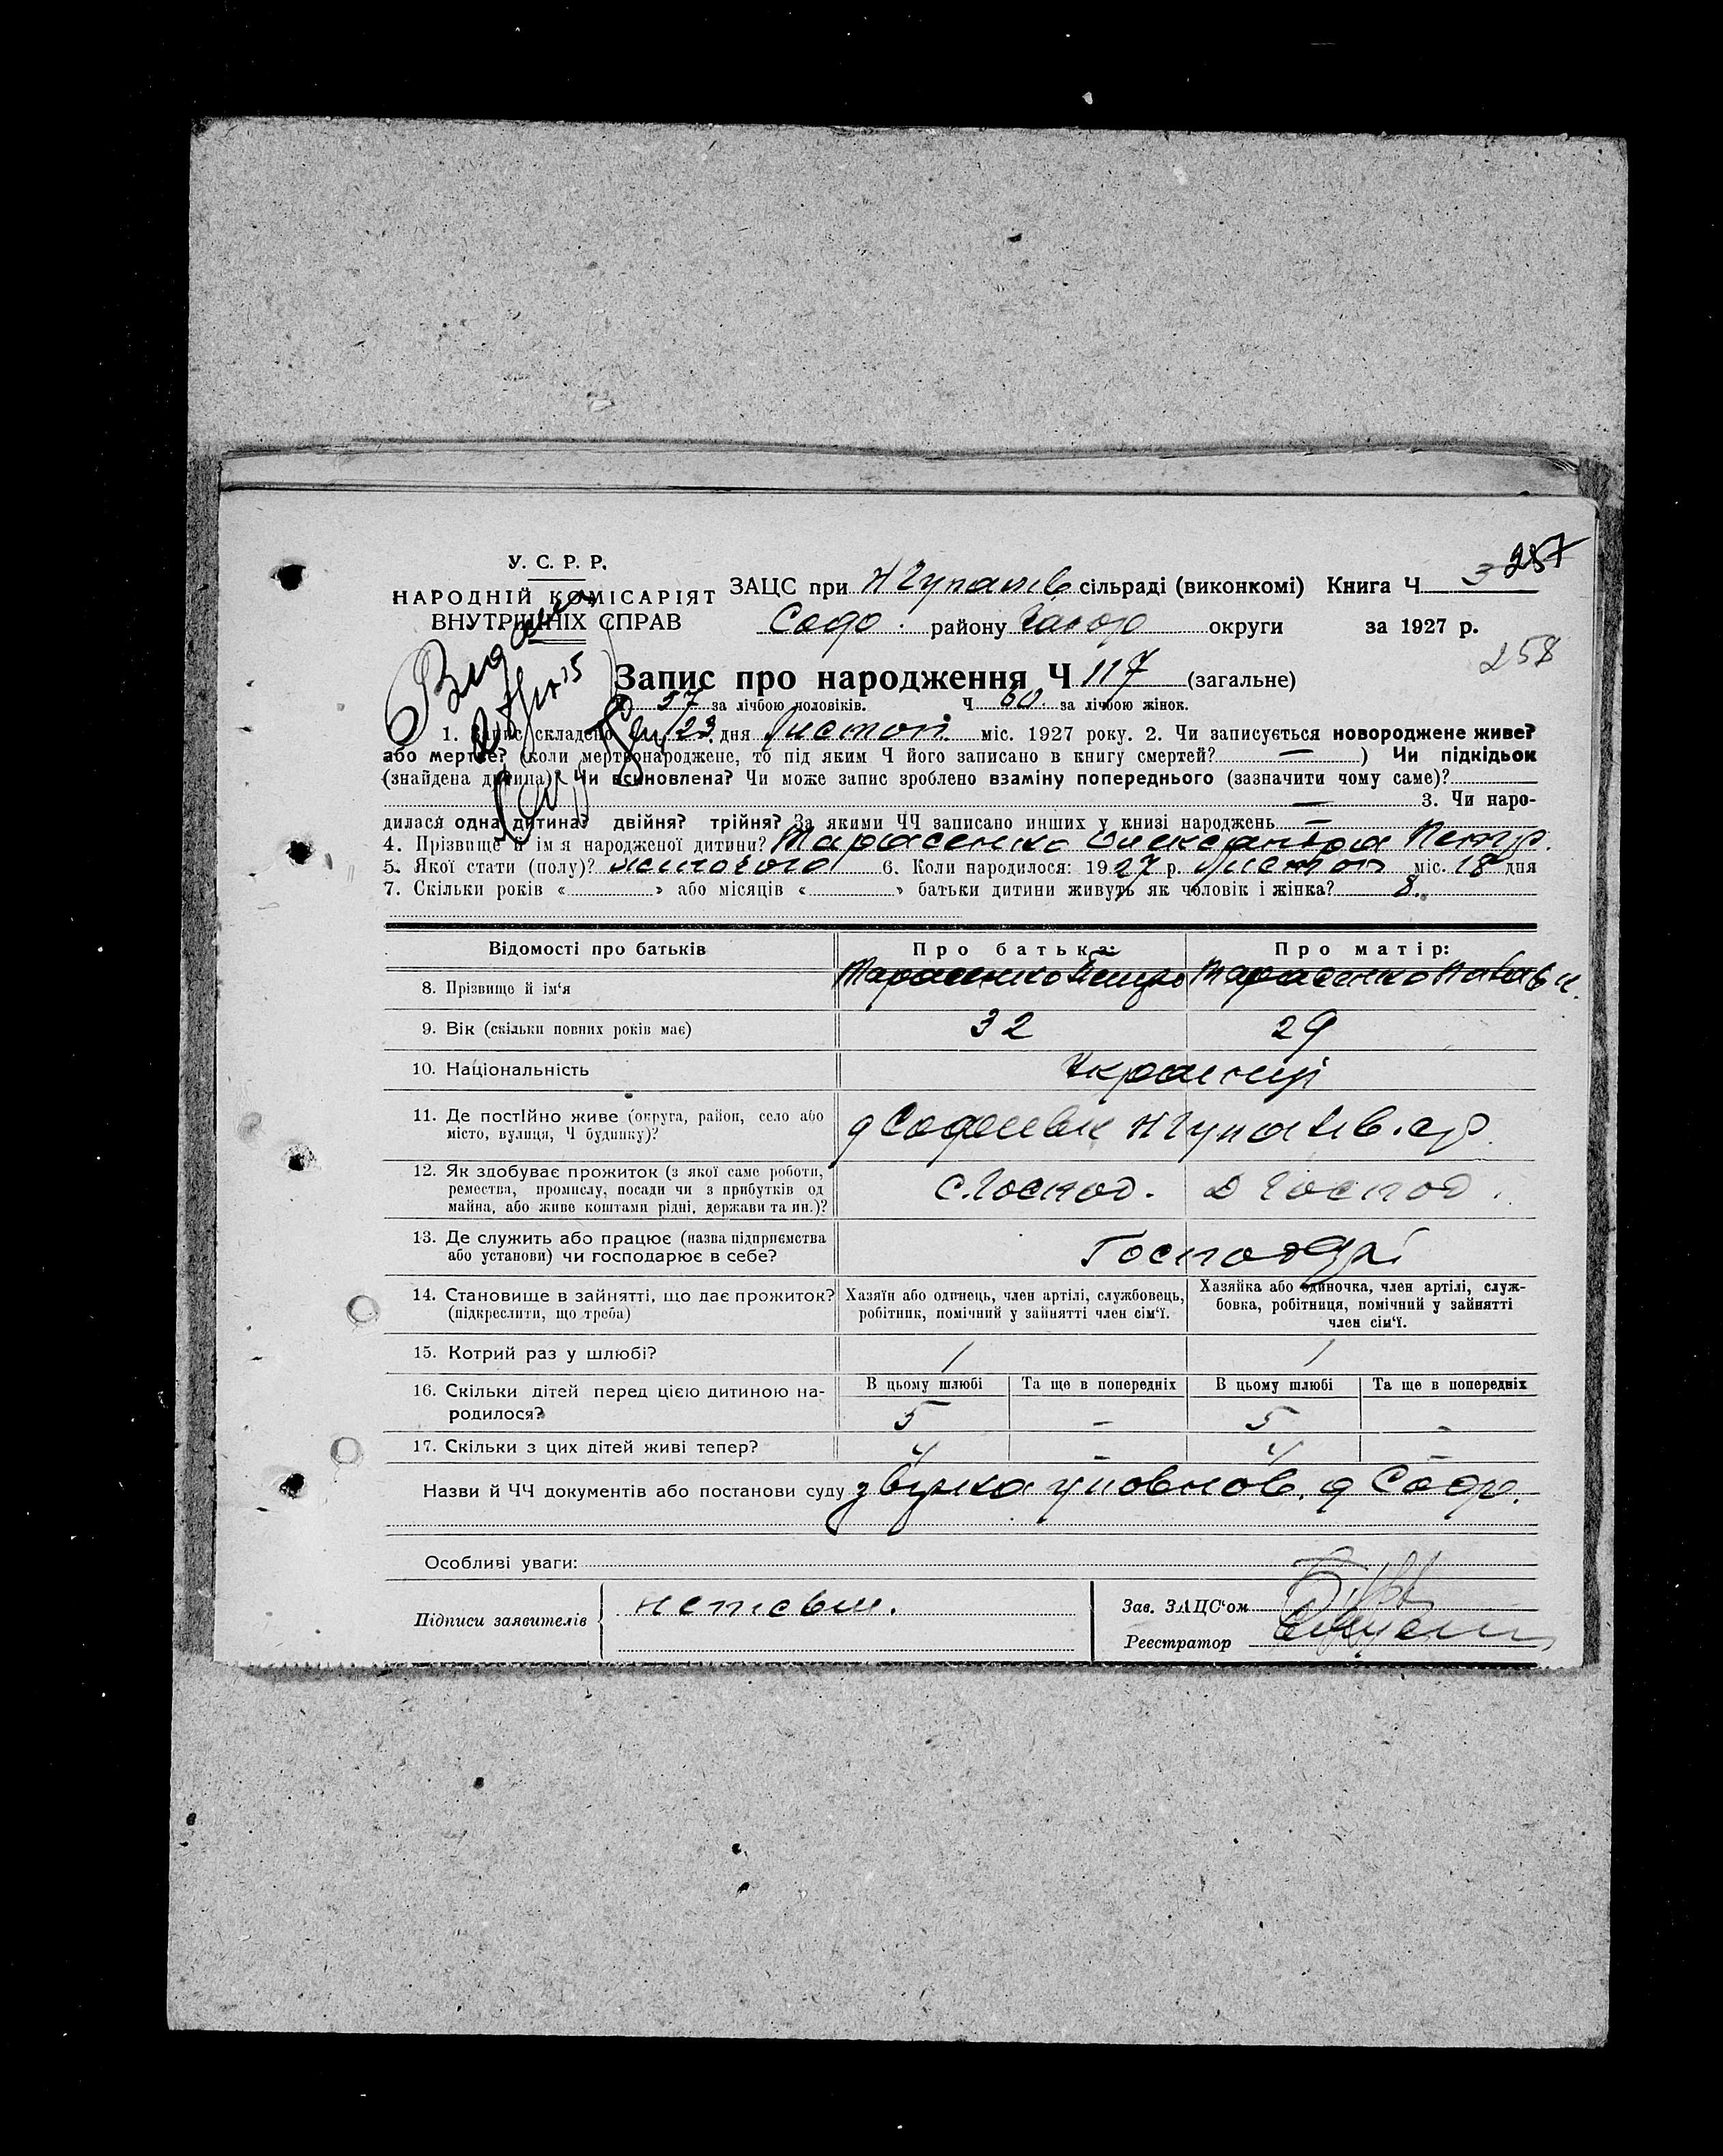 У. С. Р. Р.
НАРОДНІЙ КОМІСАРІЯТ
ВНУТРІШНІХ СПРАВ
ЗАЦС при сільраді (виконкомі) Книга Ч 3 257
Софо. району округи за 1927 р.
258
Видано
Запис про народження Ч 117 (загальне)
Ч 57 за лічбою чоловіків. Ч 60. за лічбою жінок.
1. Запис складено 23 дня Листоп. міс. 1927 року. 2. Чи записується новороджене живе?
або мертве? (коли мертвонароджене, то під яким Ч його записано в книгу смертей? — ) Чи підкідьок
(знайдена дитина)? Чи всиновлена? Чи може запис зроблено взаміну попереднього (зазначити чому саме)?
— 3. Чи наро-
дилася одна дитина? двійня? трійня? За якими ЧЧ записано инших у книзі народжень —
4. Прізвище й ім'я народженої дитини? Тарасенко Олександра Петр.
5. Якої стати (полу)? жіночого 6. Коли народилося: 1927 р. Листоп міс. 18 дня
7. Скільки років «» або місяців «» батьки дитини живуть як чоловік і жінка? 8.
Відомості про батьків Про батька: Про матір:
8. Прізвище й ім'я Тарасенко Петро Тарасенко
9. Вік (скільки повних років має) 32 29
10. Національність Українці
11. Де постійно живе (округа, район, село або
місто, вулиця, Ч будинку)?
12. Як здобуває прожиток (з якої саме роботи,
ремества, промислу, посади чи з прибутків од
майна, або живе коштами рідні, держави та ин.)?
С. Господ. Д Господ.
13. Де служить або працює (назва підприємства
або установи) чи господарює в себе?
14. Становище в зайнятті, що дає прожиток?
(підкреслити, що треба)
Хазяїн або одинець, член артілі, службовець,
робітник, помічний у зайнятті член сім'ї.
Хазяйка або одиночка, член артілі, служ-
бовка, робітниця, помічний у зайнятті
член сім'ї.
15. Котрий раз у шлюбі? 1 1
16. Скільки дітей перед цією дитиною на-
родилося?
В цьому шлюбі Та ще в попередніх В цьому шлюбі Та ще в попередніх
5 – 5 –
17. Скільки з цих дітей живі тепер? 4 – 4 –
Назви й ЧЧ документів або постанови суду уповнов. д Софо.
Особливі уваги:
Підписи заявителів неписьм.
Зав. ЗАЦС'ом
Реєстратор